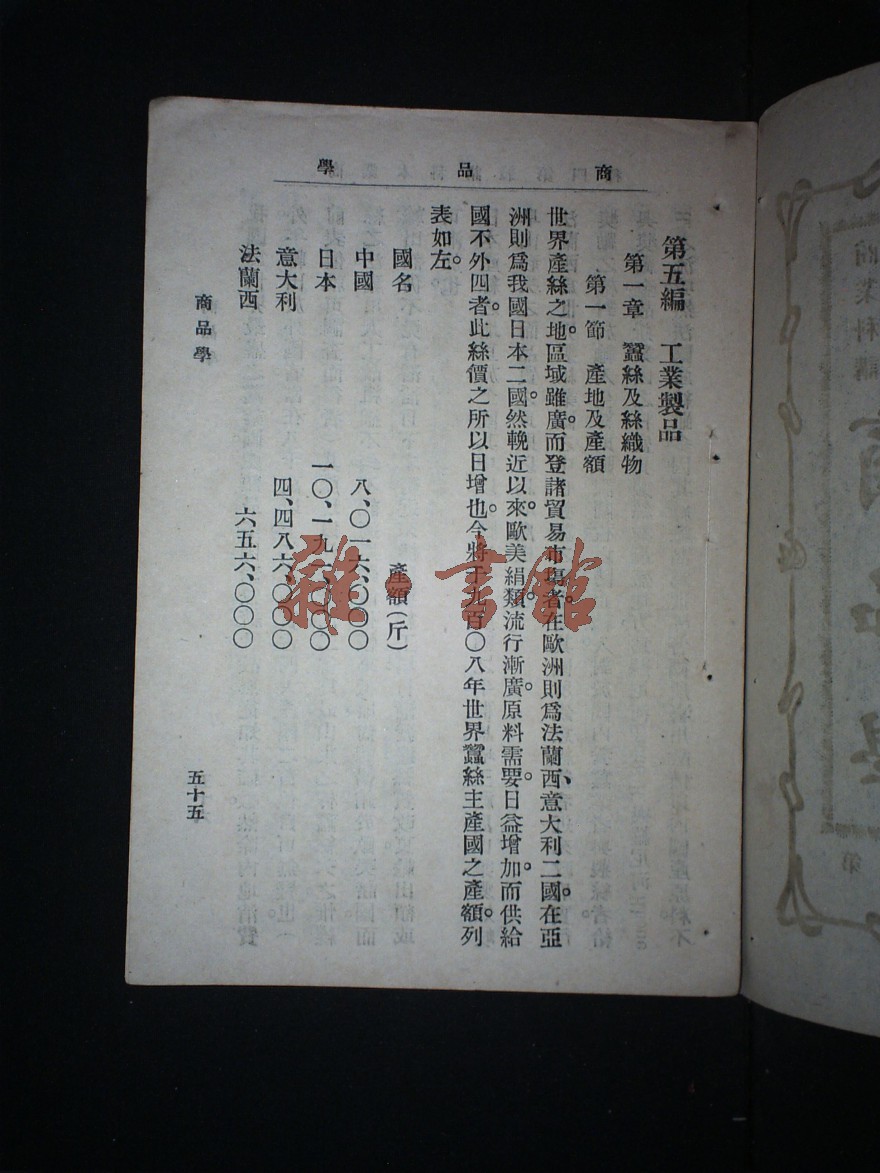 商品學
第五編　工業製品
第一章　蠶絲及絲織物
第一節　產地及產額
世界產絲之地。區域雖廣。而登諸貿易市場者。在歐洲則爲法蘭西、意大利二國。在亞
洲則爲我國日本二國。然輓近以來。歐美絹類。流行漸廣。原料需要。日益增加。而供給
國不外四者。此絲價之所以日增也。今將千九百〇八年世界蠶絲主產國之產額。列
表如左。
國名　產額(斤)
中國　八、〇一六、〇〇〇
日本　一〇、一九六、〇〇〇
意大利　四、四八六、〇〇〇
法蘭西　六五六、〇〇〇
商品學
五十五
雜·書館
商業科講
第